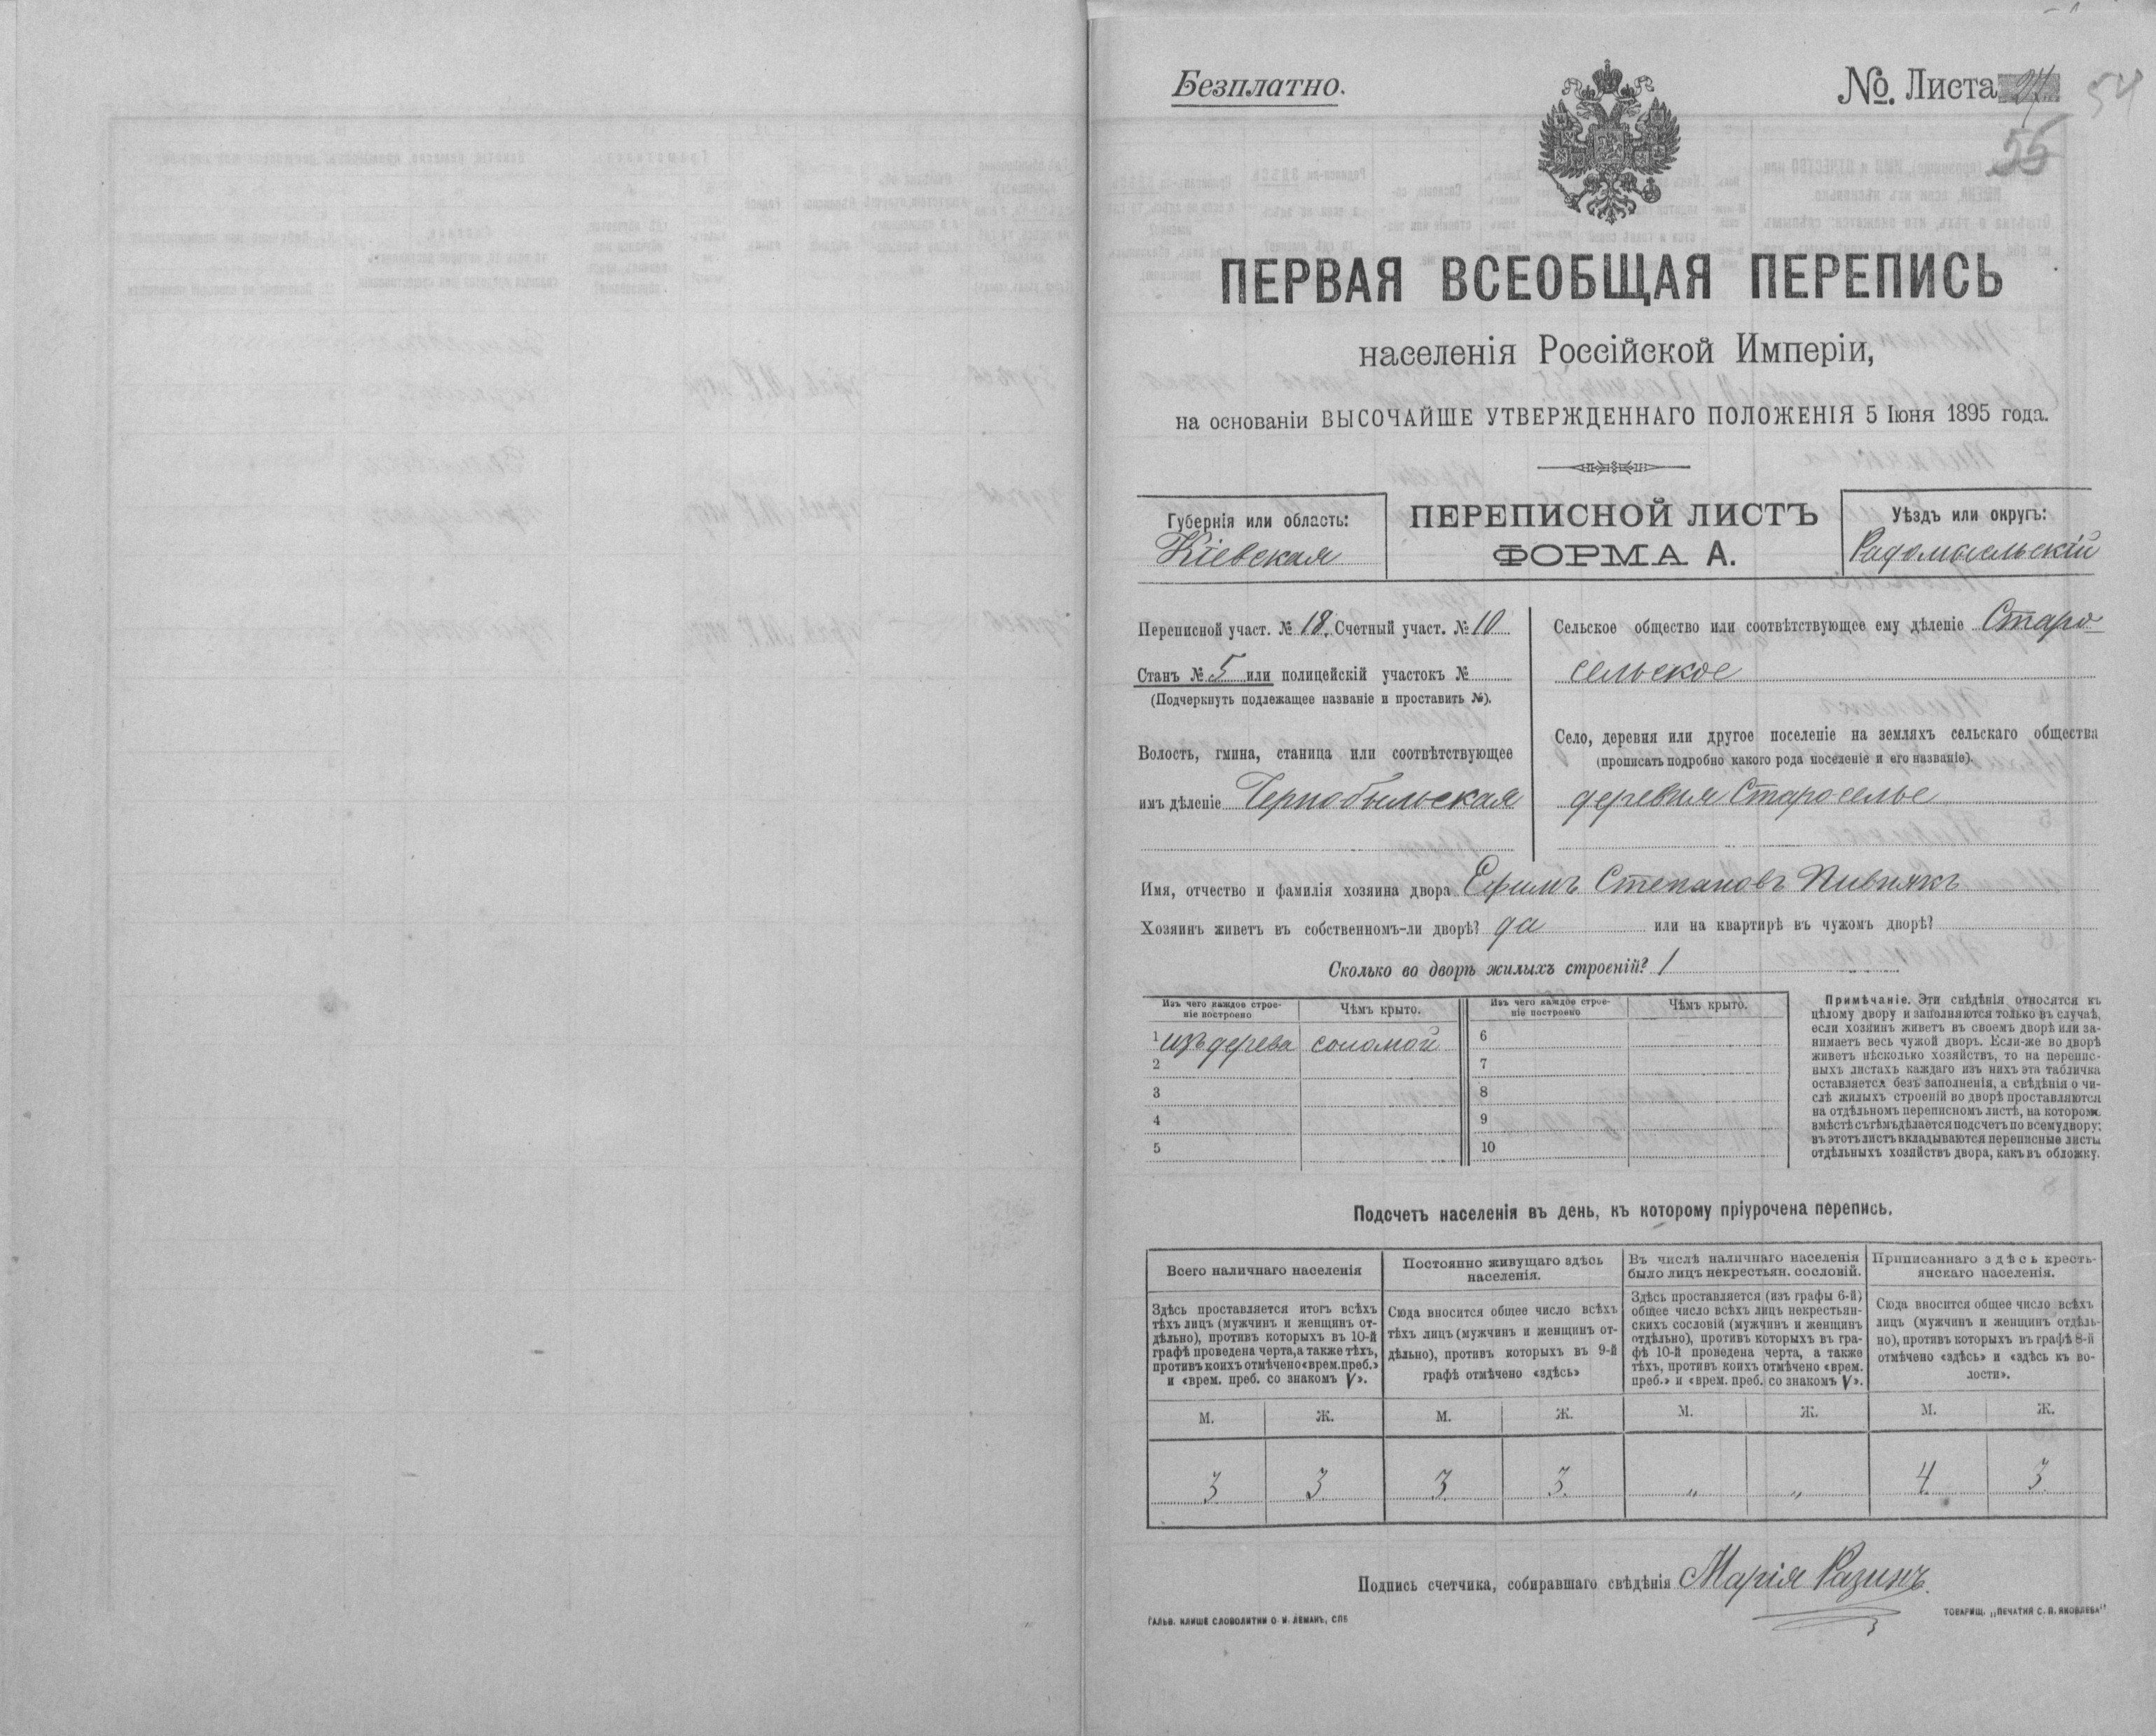 Безплатно.
№ Листа
54
55
ПЕРВАЯ ВСЕОБЩАЯ ПЕРЕПИСЬ
населенія Россійской Имперіи,
на основаніи ВЫСОЧАЙШЕ УТВЕРЖДЕННАГО ПОЛОЖЕНІЯ 5 Іюня 1895 года.
Губернія или область:
Кіевская
ПЕРЕПИСНОЙ ЛИСТЪ
ФОРМА А.
Уѣздъ или округъ:
Радомысльскій
Переписной участ. № 18. Счетный участ. № 10
Станъ № 5 или полицейскій участокъ №
(Подчеркнуть подлежащее названіе и проставить №).
Волость, гмина, станица или соотвѣтствующее
имъ дѣленіе Чернобыльская
Сельское общество или соотвѣтствующее ему дѣленіе Старо
сельское
Село, деревня или другое поселеніе на земляхъ сельскаго общества
(прописать подробно какого рода поселеніе и его названіе).
деревня Староселье
Имя, отчество и фамилія хозяина двора Ефимъ Степановъ Пивнякъ
Хозяинъ живетъ въ собственномъ-ли дворѣ? да или на квартирѣ въ чужомъ дворѣ?
Сколько во дворѣ жилыхъ строеній? 1
Изъ чего каждое строе-
ніе построено
Чѣмъ крыто.
Изъ чего каждое строе-
ніе построено
Чѣмъ крыто.
1 изъ дерева соломой 6
2 7
3 8
4 9
5 10
Примѣчаніе. Эти свѣдѣнія относятся къ
цѣлому двору и заполняются только въ случаѣ,
если хозяинъ живетъ въ своемъ дворѣ или за-
нимаетъ весь чужой дворъ. Если-же во дворѣ
живетъ нѣсколько хозяйствъ, то на перепис-
ныхъ листахъ каждаго изъ нихъ эта табличка
оставляется безъ заполненія, а свѣдѣнія о чи-
слѣ жилыхъ строеній во дворѣ проставляются
на отдѣльномъ переписномъ листѣ, на которомъ
вмѣстѣ съ тѣмъ дѣлается подсчетъ по всему двору;
въ этотъ листъ вкладываются переписные листы
отдѣльныхъ хозяйствъ двора, какъ въ обложку.
Подсчетъ населенія въ день, къ которому пріурочена перепись.
Всего наличнаго населенія
Здѣсь проставляется итогъ всѣхъ
тѣхъ лицъ (мужчинъ и женщинъ от-
дѣльно), противъ которыхъ въ 10-й
графѣ проведена черта, а также тѣхъ,
противъ коихъ отмѣчено «врем. преб.»
и «врем. преб. со знакомъ V».
Постоянно живущаго здѣсь
населенія.
Сюда вносится общее число всѣхъ
тѣхъ лицъ (мужчинъ и женщинъ от-
дѣльно), противъ которыхъ въ 9-й
графѣ отмѣчено «здѣсь»
Въ числѣ наличнаго населенія
было лицъ некрестьян. сословій.
Здѣсь проставляется (изъ графы 6-й)
общее число всѣхъ лицъ некрестьян-
скихъ сословій (мужчинъ и женщинъ
отдѣльно), противъ которыхъ въ гра-
фѣ 10-й проведена черта, а также
тѣхъ, противъ коихъ отмѣчено «врем.
преб.» и «врем. преб. со знакомъ V».
Приписаннаго здѣсь кресть-
янскаго населенія.
Сюда вносится общее число всѣхъ
лицъ (мужчинъ и женщинъ отдѣль-
но), противъ которыхъ въ графѣ 8-й
отмѣчено «здѣсь» и «здѣсь къ во-
лости».
М. Ж. М. Ж. М. Ж. М. Ж.
3 3 3 3. „ „ 4 3
Подпись счетчика, собиравшаго свѣдѣнія Марія Разинъ.
ГАЛЬВ. КЛИШЕ СЛОВОЛИТНИ О. И. ЛЕМАНЪ, СПБ
ТОВАРИЩ. „ПЕЧАТНЯ С. П. ЯКОВЛЕВА"